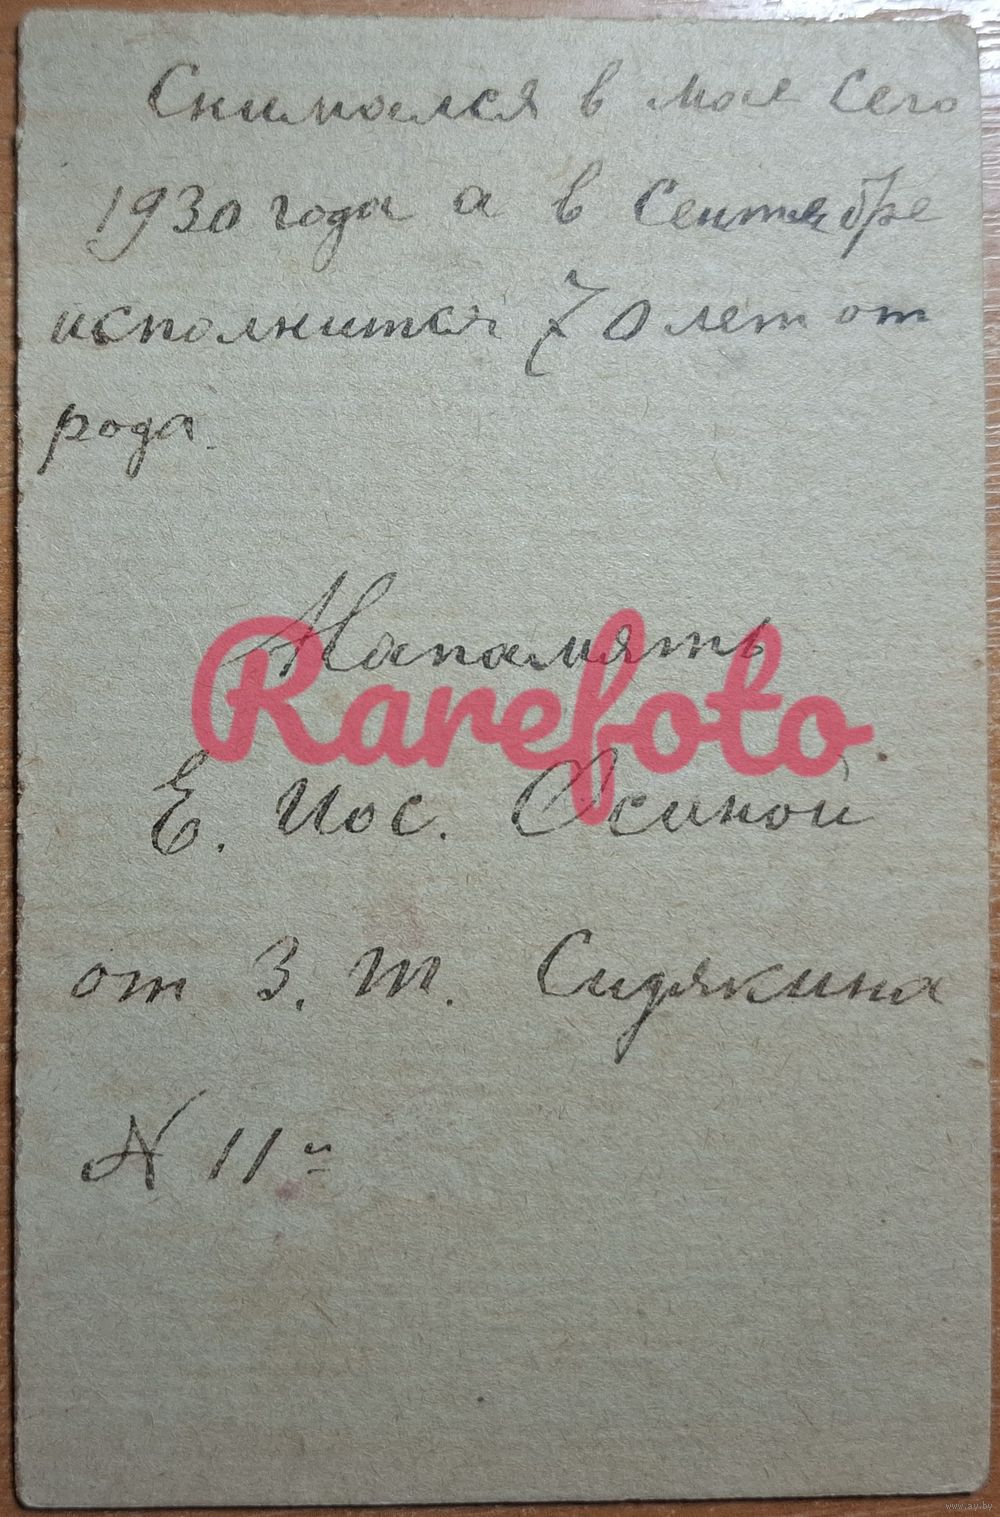 Снимался в мае сего
1930 года а в Сентябре
исполнится 70 лет от
рода.
Напамять
Rarefoto
Е. Иос. Осиной
от З. Т. Сидякина
N 11й
www.ay.by